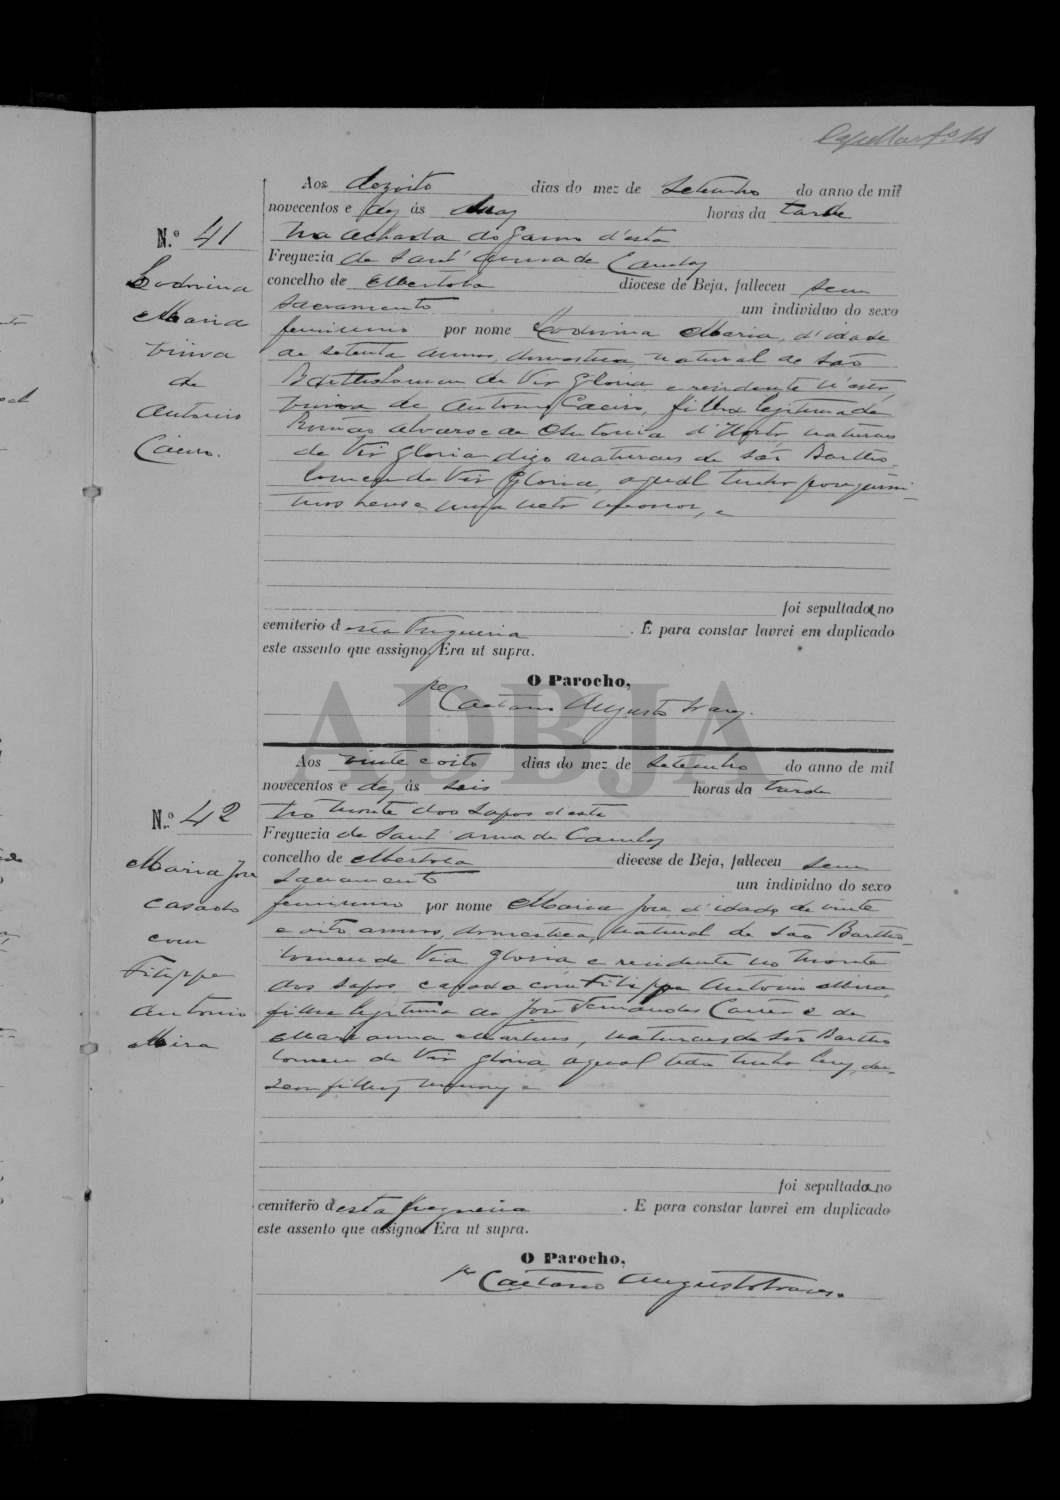 Aos dezoito dias do mez de Setembro do anno de mil
novecentos e dez ás duas horas da tarde
N.º 41
na achada do Gamo d'esta
Freguezia de Sant'Anna de Cambas
concelho de Mertola diocese de Beja, falleceu sem
Sacramento um individuo do sexo
feminino por nome Lodovina Maria, d'idade
de setenta annos, domestica, natural de São
Bartholomeu de Via Gloria e residente n'esta,
viuva de Antonio Caeiro, filha legitima de
Romão Alvares e de Antonia d'Horta, naturaes
de Via Gloria digo naturaes de São Bartho
lomeu de Via Gloria, a qual
Lodovina
Maria
viuva
de
Antonio
Caeiro.
foi sepultada no
cemiterio d'esta Freguesia. E para constar lavrei em duplicado
este assento que assigno. Era ut supra.
O Parocho,
Pe Caetano Augusto
ADBJA
Aos vinte e oito dias do mez de Setembro do anno de mil
novecentos e dez ás seis horas da tarde
N.º 42
no Monte dos Sapos d'esta
Freguezia de Sant'Anna de Cambas
concelho de Mertola diocese de Beja, falleceu sem
Sacramento um individuo do sexo
feminino por nome Maria José, d'idade de vinte
e oito annos, domestica, natural de São Bartho
lomeu de Via Gloria e residente no Monte
dos Sapos, casada com Filippe Antonio Mira,
filha legitima de José Fernandes e de
Marianna Martins, naturaes de São Bartho
lomeu de Via Gloria, a qual
filhos menores e
Maria José
casada
com
Filippe
Antonio
Mira
foi sepultada no
cemiterio d'esta freguesia. E para constar lavrei em duplicado
este assento que assigno. Era ut supra.
O Parocho,
Pe Caetano Augusto